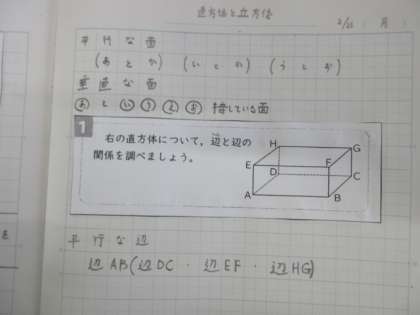 直方体と立方体
2/21 ( 月 )
平行な面
(あとか) (いとえ) (うとお)
垂直な面
あと い う え お 接している面
1
右の直方体について，辺と辺の
関係を調べましょう。
H
G
E
F
D
C
A
B
平行な辺
辺AB(辺DC・辺EF・辺HG)